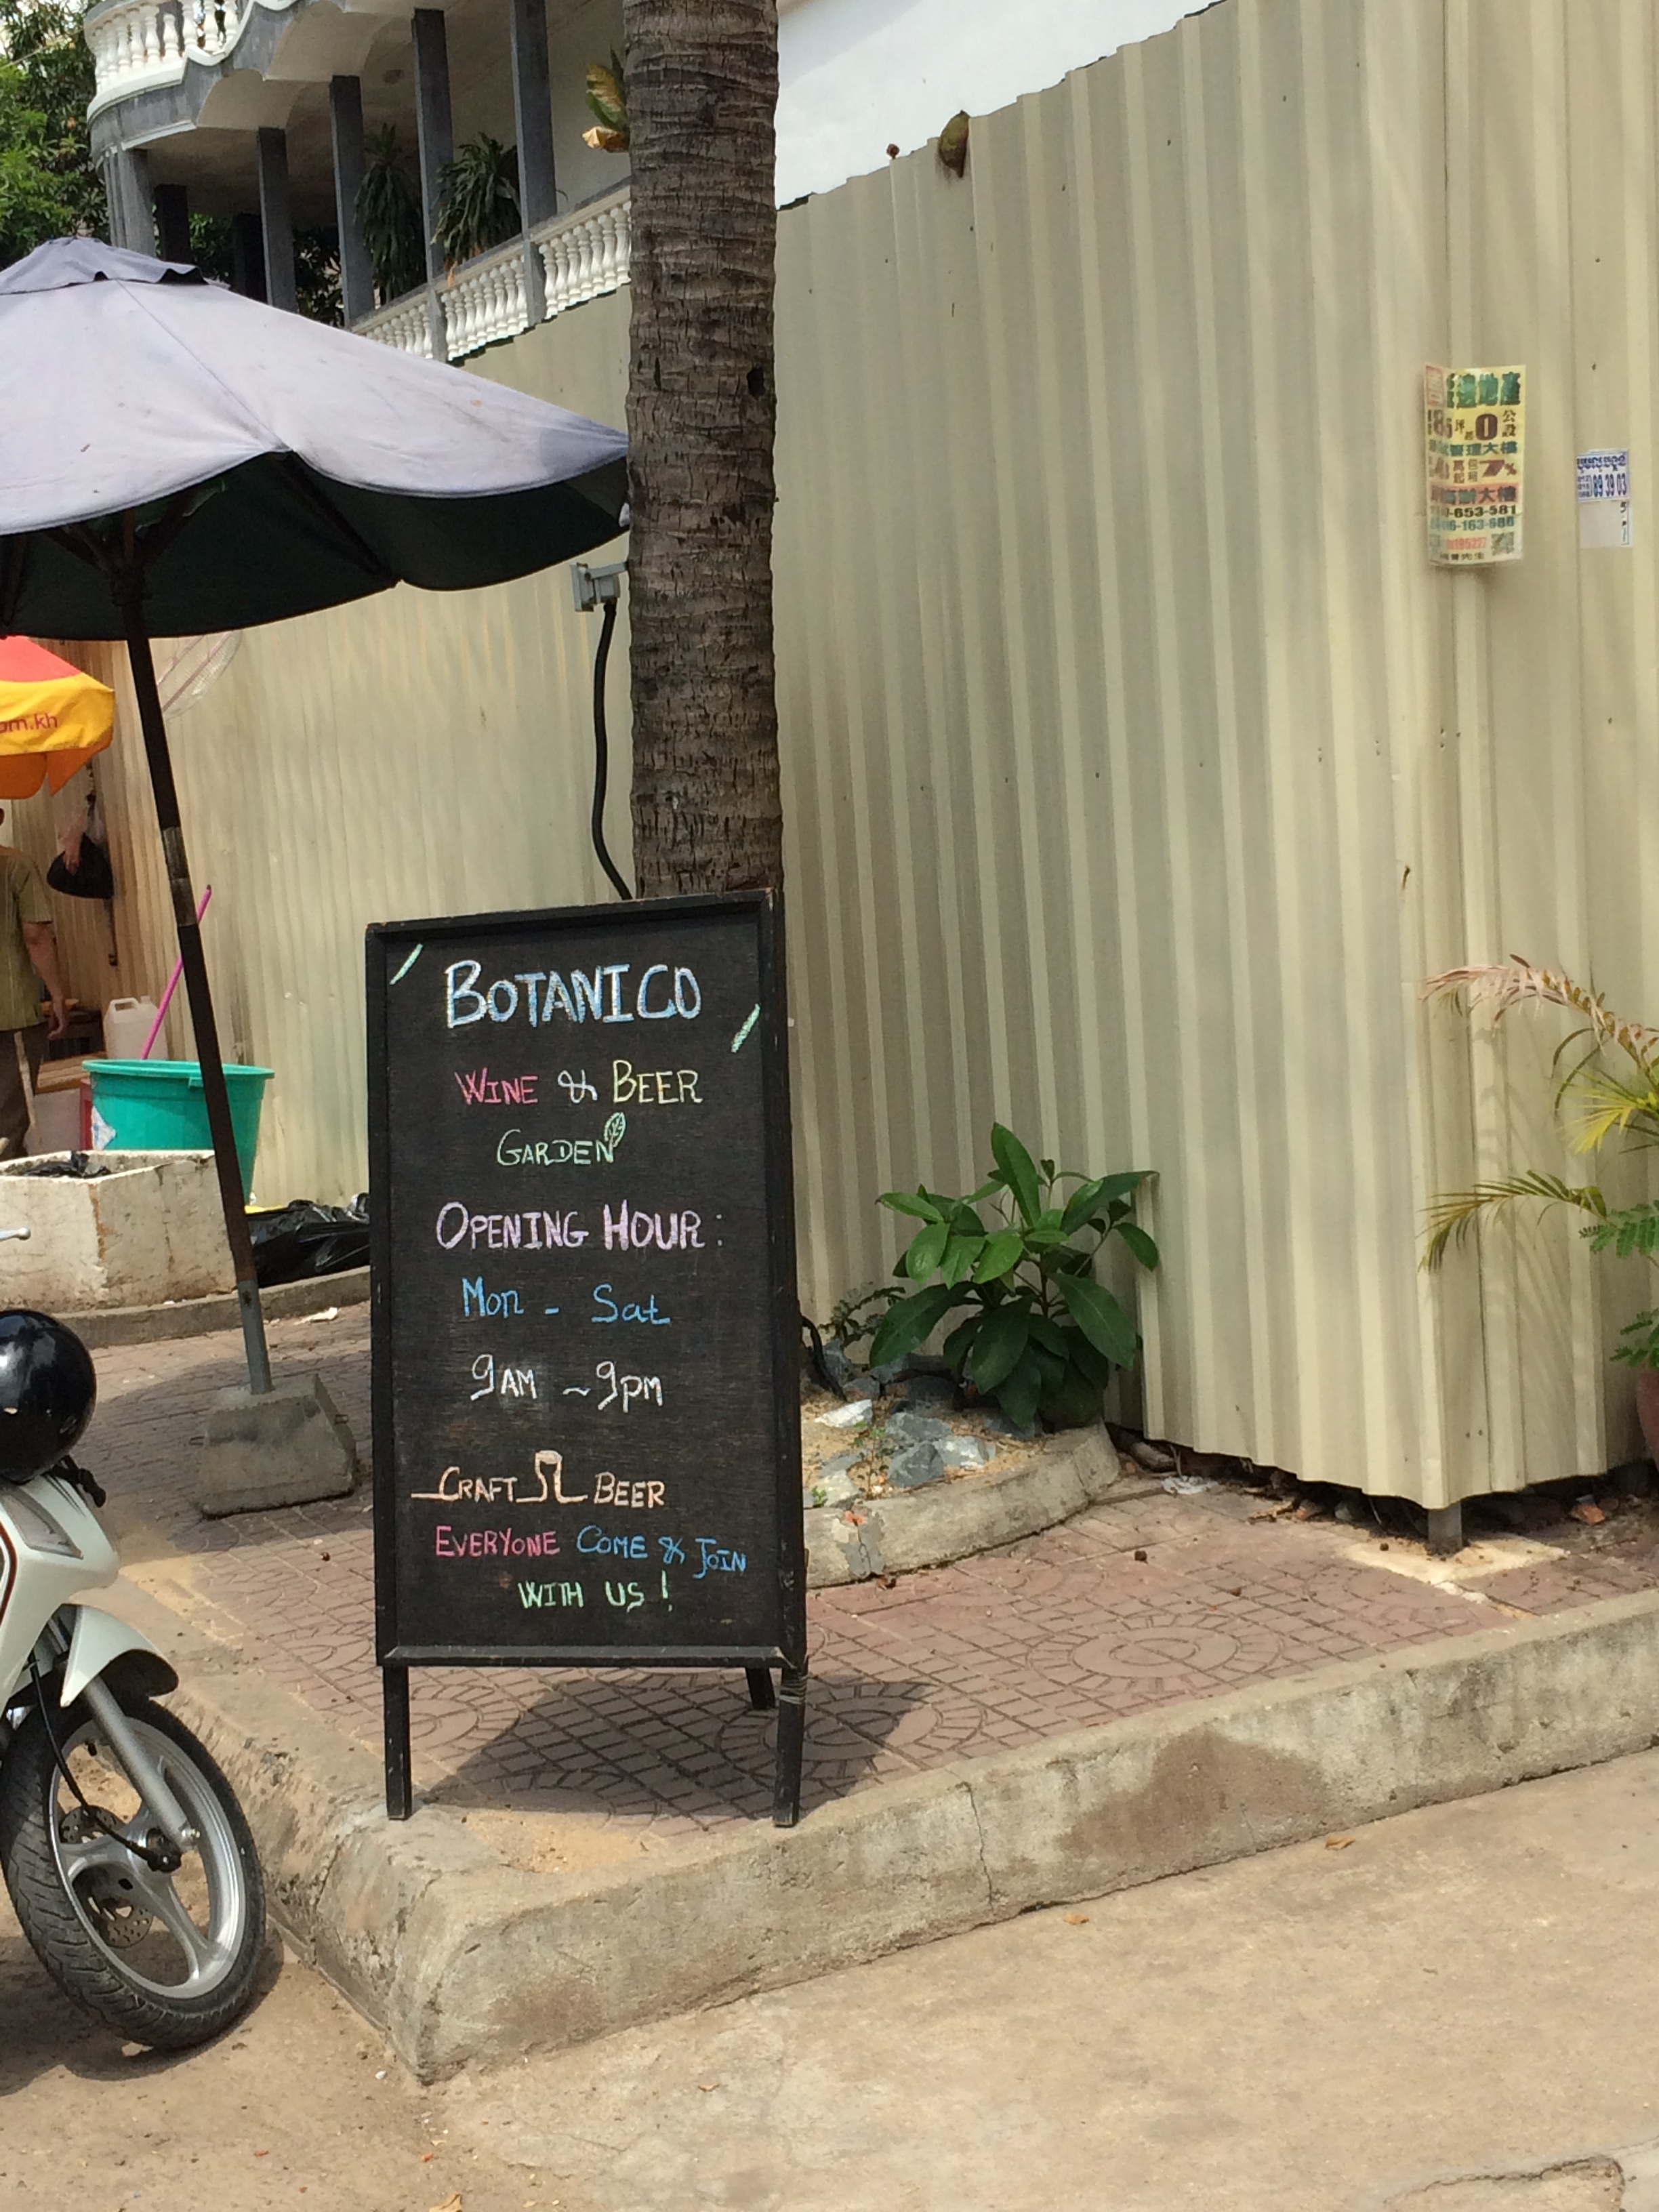 BOTANICO
WINE & BEER
GARDEN
OPENING HOUR:
Mon - Sat
9AM ~ 9PM
CRAFT BEER
EVERYONE COME & JOIN
WITH US!
om.kh
邊地產
坪 0 公設
管理大樓
7%
大樓
-653-581
-163-686
先生
89 39 03